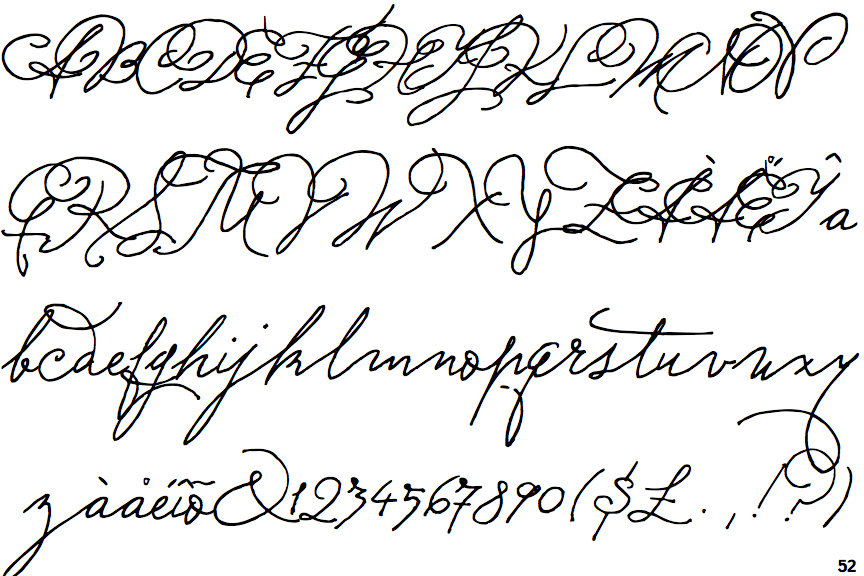 ABCDEFGHIJKLMNOP
QRSTUVWXYZÀÅÉÎa
bcdefghijklmnopqrstuvwxy
zàåéîõ&1234567890($£.,!?)
52